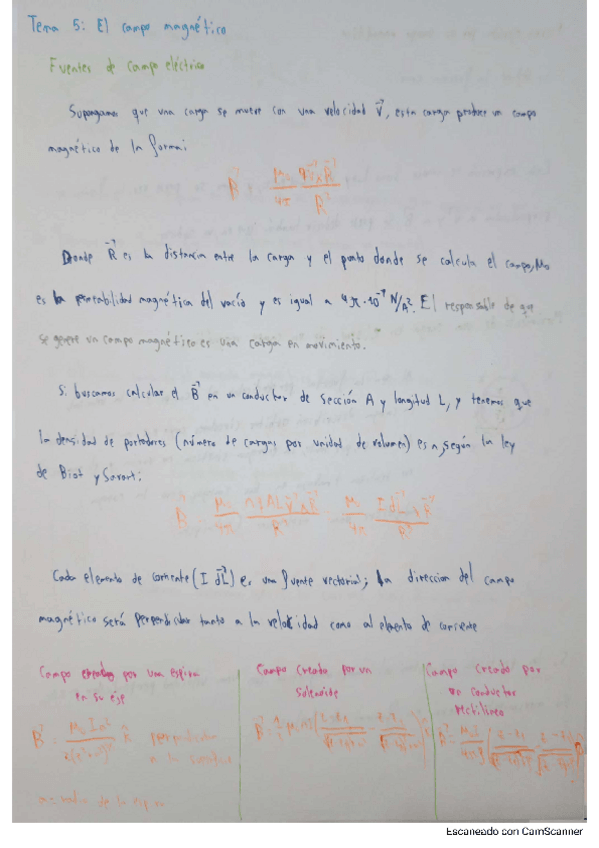 Tema 5: El campo magnético
Fuentes de campo eléctrico
Supongamos que una carga se mueve con una velocidad V⃗, esta carga produce un campo
magnético de la forma:
B⃗ = μ₀/4π qV⃗xR⃗/R³
Donde R⃗ es la distancia entre la carga y el punto donde se calcula el campo, μ₀
es la permeabilidad magnética del vacío y es igual a 4π·10⁻⁷ N/A². El responsable de que
se genere un campo magnético es una carga en movimiento.
Si buscamos calcular el B⃗ en un conductor de sección A y longitud L, y tenemos que
la densidad de portadores (número de cargas por unidad de volumen) es n, según la ley
de Biot y Savart:
B⃗ = μ₀/4π nqALV⃗xR⃗/R³ = μ₀/4π I dL⃗xR⃗/R³
Cada elemento de corriente (I dL⃗) es una fuente vectorial; la direccion del campo
magnético será perpendicular tanto a la velocidad como al elemento de corriente
Campo creado por una espira
en su eje
Campo creado por un
Solenoide
Campo creado por
un conductor
rectilíneo
perpendicular
a la
a = radio de la espira
Escaneado con CamScanner